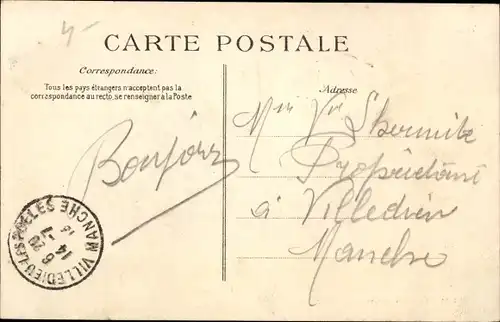 4-
CARTE POSTALE
Correspondance:
Tous les pays étrangers n'acceptent pas la
correspondance au recto, se renseigner à la Poste
Adresse
Bonjour
Mme Vve Lhermite
Propriétaire
à Villedieu
Manche
VILLEDIEU-LES-POÊLES MANCHE